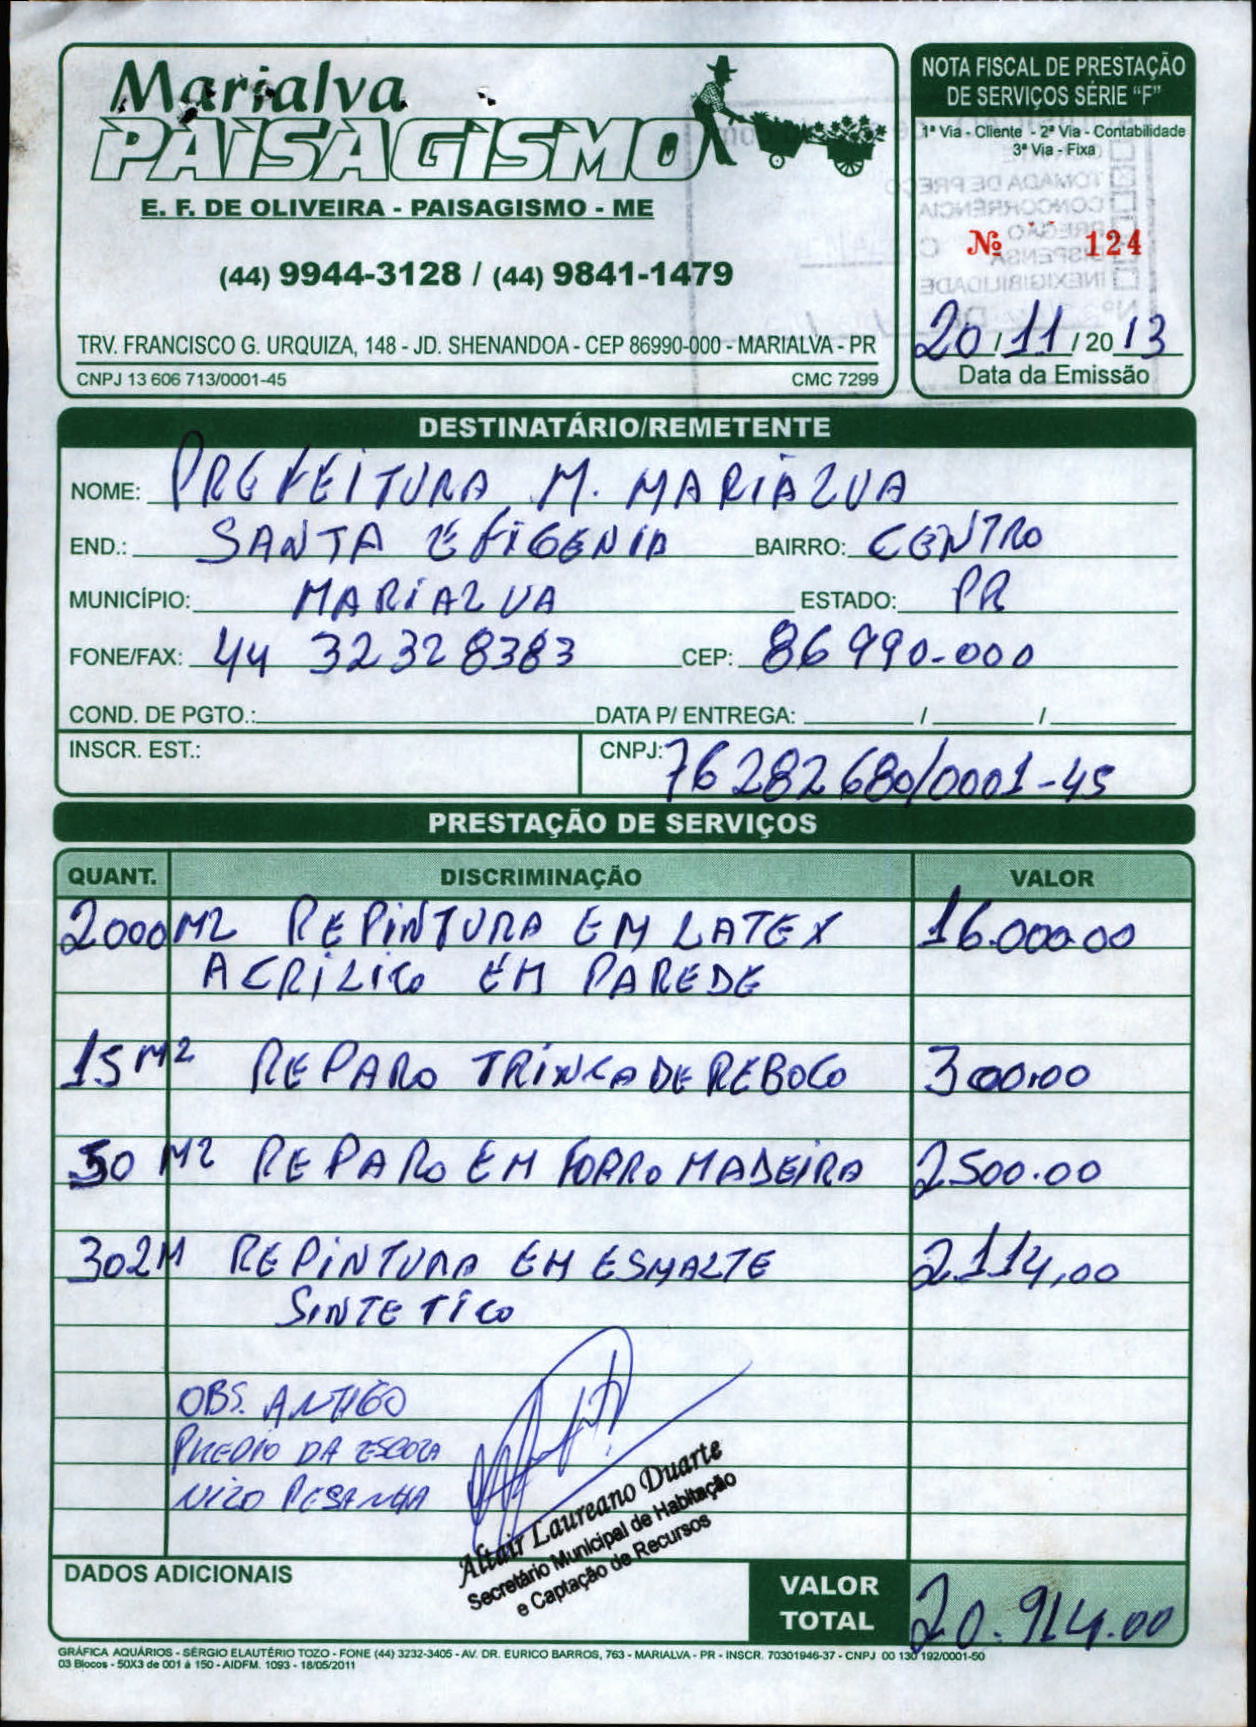 Marialva
PAISAGISMO
E. F. DE OLIVEIRA - PAISAGISMO - ME
(44) 9944-3128 / (44) 9841-1479
TRV. FRANCISCO G. URQUIZA, 148 - JD. SHENANDOA - CEP 86990-000 - MARIALVA - PR
CNPJ 13 606 713/0001-45 CMC 7299
NOTA FISCAL DE PRESTAÇÃO
DE SERVIÇOS SÉRIE "F"
1ª Via - Cliente - 2ª Via - Contabilidade
3ª Via - Fixa
TOMADA DE PREÇO
CONCORRÊNCIA
PREGÃO
DISPENSA
INEXIGIBILIDADE
Nº 124
20/11/2013
Data da Emissão
DESTINATÁRIO/REMETENTE
NOME: PREFEITURA M. MARIALVA
END.: SANTA EFIGENIA BAIRRO: CENTRO
MUNICÍPIO: MARIALVA ESTADO: PR
FONE/FAX: 44 32328383 CEP: 86990-000
COND. DE PGTO.: DATA P/ ENTREGA: / /
INSCR. EST.: CNPJ: 76282680/0001-45
PRESTAÇÃO DE SERVIÇOS
QUANT. DISCRIMINAÇÃO VALOR
2000 M2 REPINTURA EM LATEX 16.000.00
ACRÍLICO EM PAREDE
15 M2 REPARO TRINCA DE REBOCO 300.00
50 M2 REPARO EM FORRO MADEIRA 2500.00
302M REPINTURA EM ESMALTE 2.114,00
SINTETICO
OBS. ANTIGO
PREDIO DA ESCOLA
NILO PESANHA
Altair Laureano Duarte
Secretário Municipal de Habitação
e Captação de Recursos
DADOS ADICIONAIS
VALOR
TOTAL 20.914.00
GRÁFICA AQUÁRIOS - SÉRGIO ELAUTÉRIO TOZO - FONE (44) 3232-3405 - AV. DR. EURICO BARROS, 763 - MARIALVA - PR - INSCR. 70301946-37 - CNPJ 00 130 192/0001-50
03 Blocos - 50X3 de 001 à 150 - AIDFM. 1093 - 18/05/2011